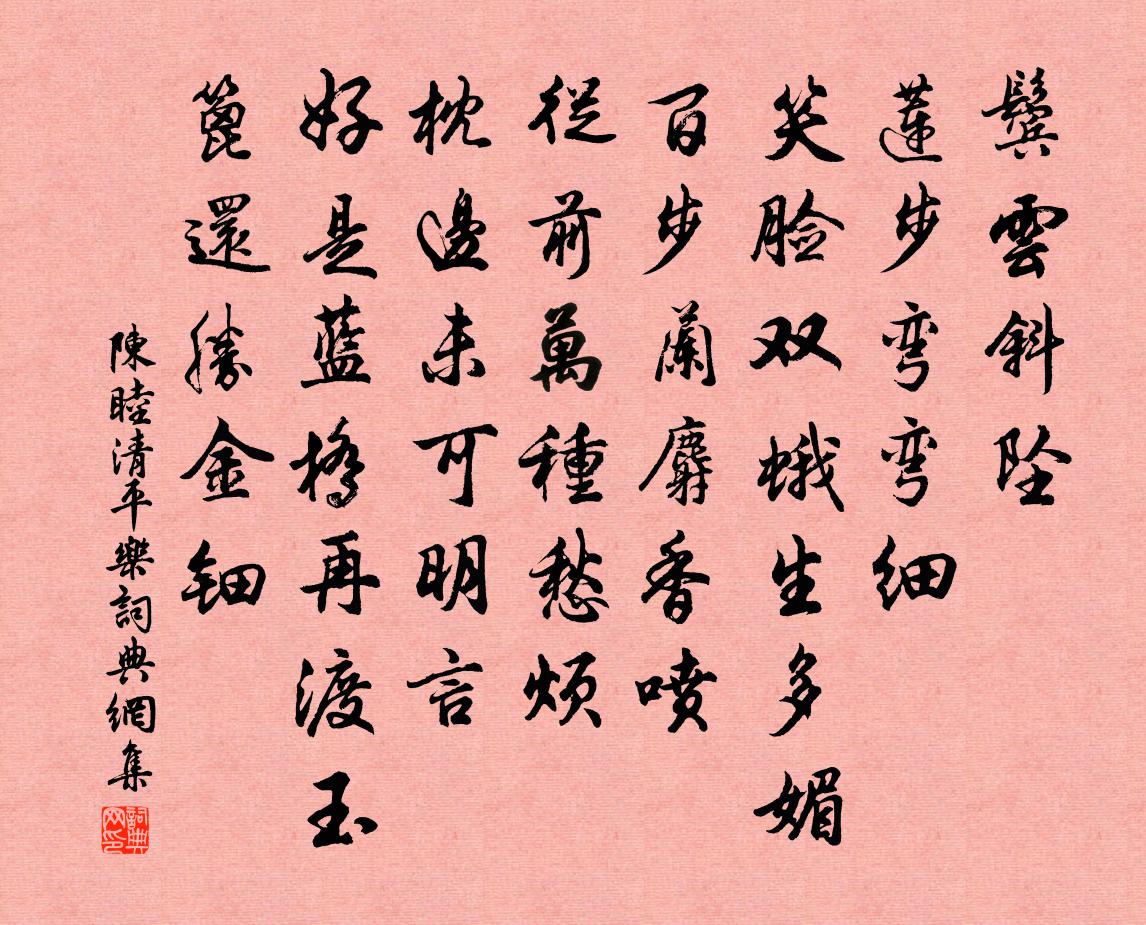 鬓雲斜坠
蓮步弯弯細
笑脸双蛾生多媚
百步蘭麝香喷
從前萬種愁烦
枕邊未可明言
好是藍橋再渡玉
篦還勝金钿
陳睦清平樂詞典網集
詞典网印